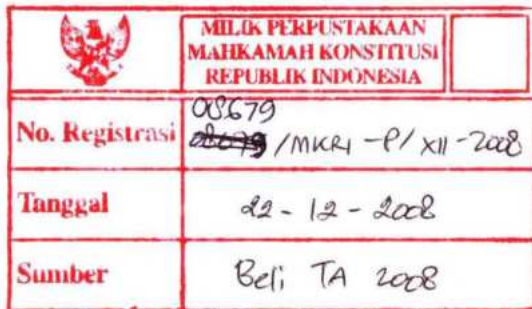 MILIK PERPUSTAKAAN
MAHKAMAH KONSTITUSI
REPUBLIK INDONESIA
08679
No. Registrasi 08679 /MKRI -P/ XII -2008
Tanggal 22 - 12 - 2008
Sumber Beli TA 2008